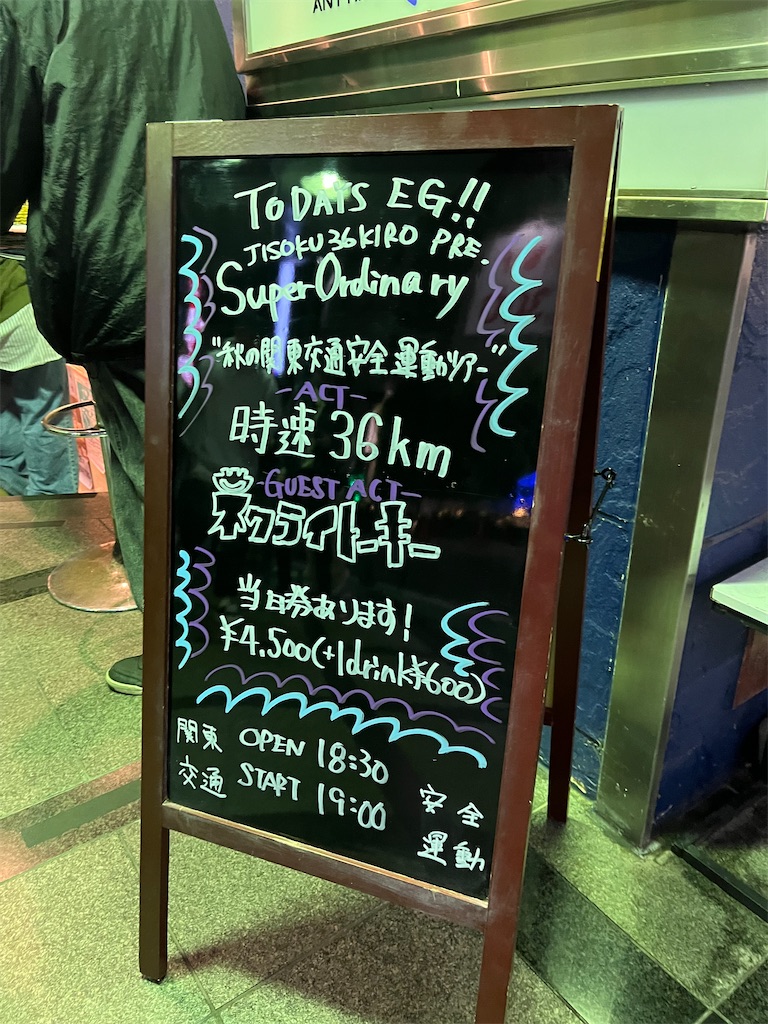 TODAYS EG!!
JISOKU 36KIRO PRE.
SuperOrdinary
"秋の関東交通安全運動ツアー"
-ACT-
時速36km
-GUEST ACT-
ネクライトーキー
当日券あります!
¥4.500(+1drink¥600)
関東 OPEN 18:30
交通 START 19:00
安全
運動